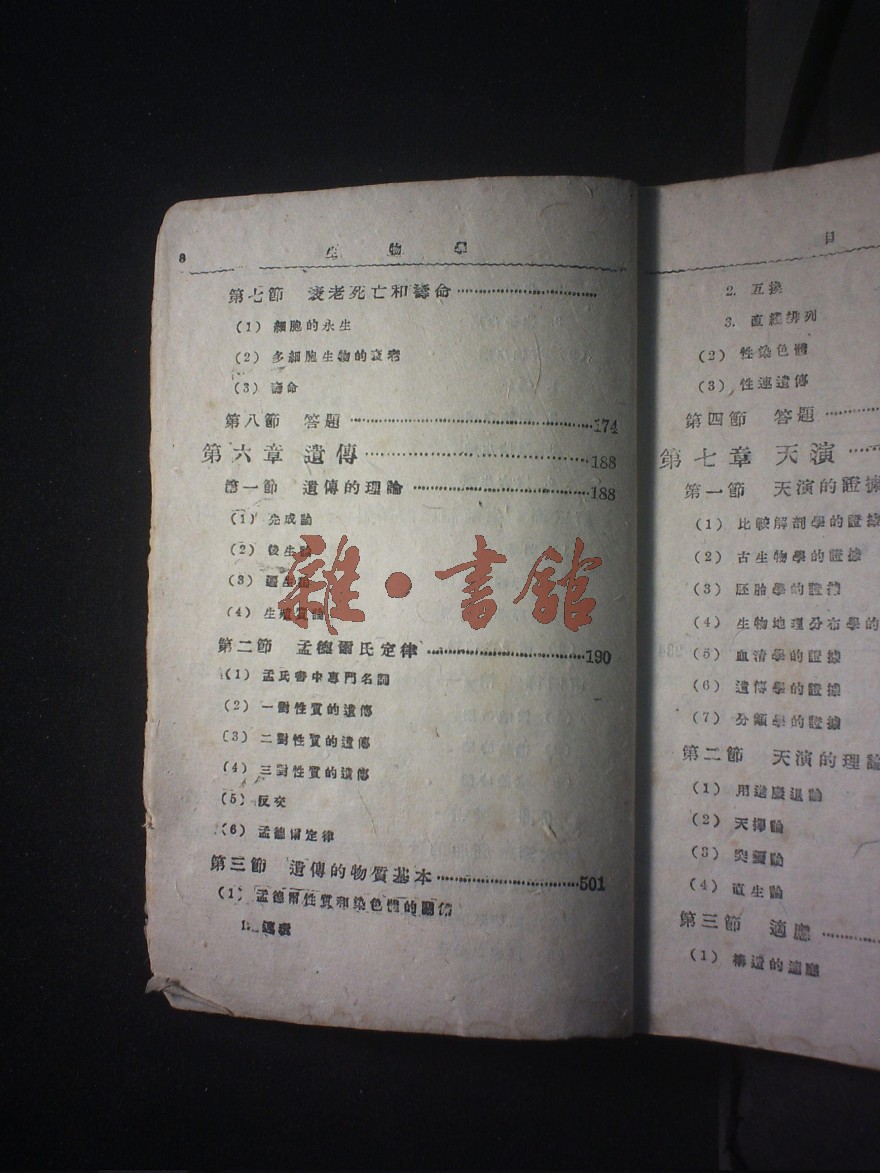 8 生物學
第七節 衰老死亡和壽命
(1) 細胞的永生
(2) 多細胞生物的衰老
(3) 壽命
第八節 答題 174
第六章 遺傳 188
第一節 遺傳的理論 188
(1) 先成論
(2) 後生論
(3)
(4) 生殖質論
第二節 孟德爾氏定律 190
(1) 孟氏書中專門名詞
(2) 一對性質的遺傳
(3) 二對性質的遺傳
(4) 三對性質的遺傳
(5) 反交
(6) 孟德爾定律
第三節 遺傳的物質基本 501
(1) 孟德爾性質和染色體的關係
1. 連鎖
雜·書館
目
2. 互換
3. 直綫排列
(2) 性染色體
(3) 性連遺傳
第四節 答題
第七章 天演
第一節 天演的證據
(1) 比較解剖學的證據
(2) 古生物學的證據
(3) 胚胎學的證據
(4) 生物地理分布學的
(5) 血清學的證據
(6) 遺傳學的證據
(7) 分類學的證據
第二節 天演的理論
(1) 用進廢退論
(2) 天擇論
(3) 突變論
(4) 直生論
第三節 適應
(1) 構造的適應